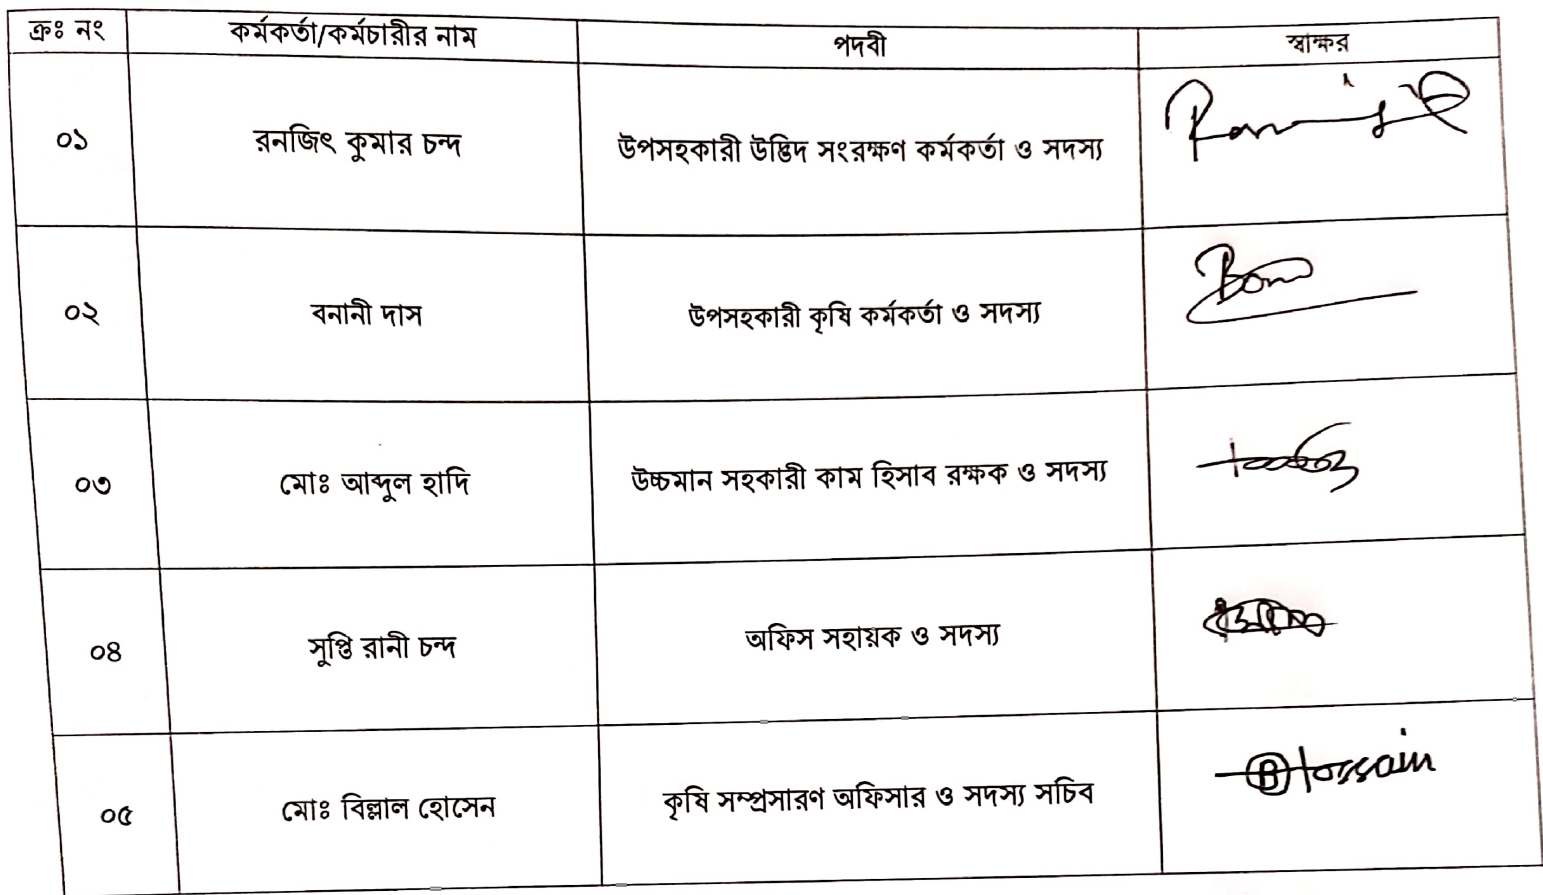 ক্রঃ নং কর্মকর্তা/কর্মচারীর নাম পদবী স্বাক্ষর
০১ রনজিৎ কুমার চন্দ উপসহকারী উদ্ভিদ সংরক্ষণ কর্মকর্তা ও সদস্য
০২ বনানী দাস উপসহকারী কৃষি কর্মকর্তা ও সদস্য
০৩ মোঃ আব্দুল হাদি উচ্চমান সহকারী কাম হিসাব রক্ষক ও সদস্য
০৪ সুপ্তি রানী চন্দ অফিস সহায়ক ও সদস্য
০৫ মোঃ বিল্লাল হোসেন কৃষি সম্প্রসারণ অফিসার ও সদস্য সচিব BHossain